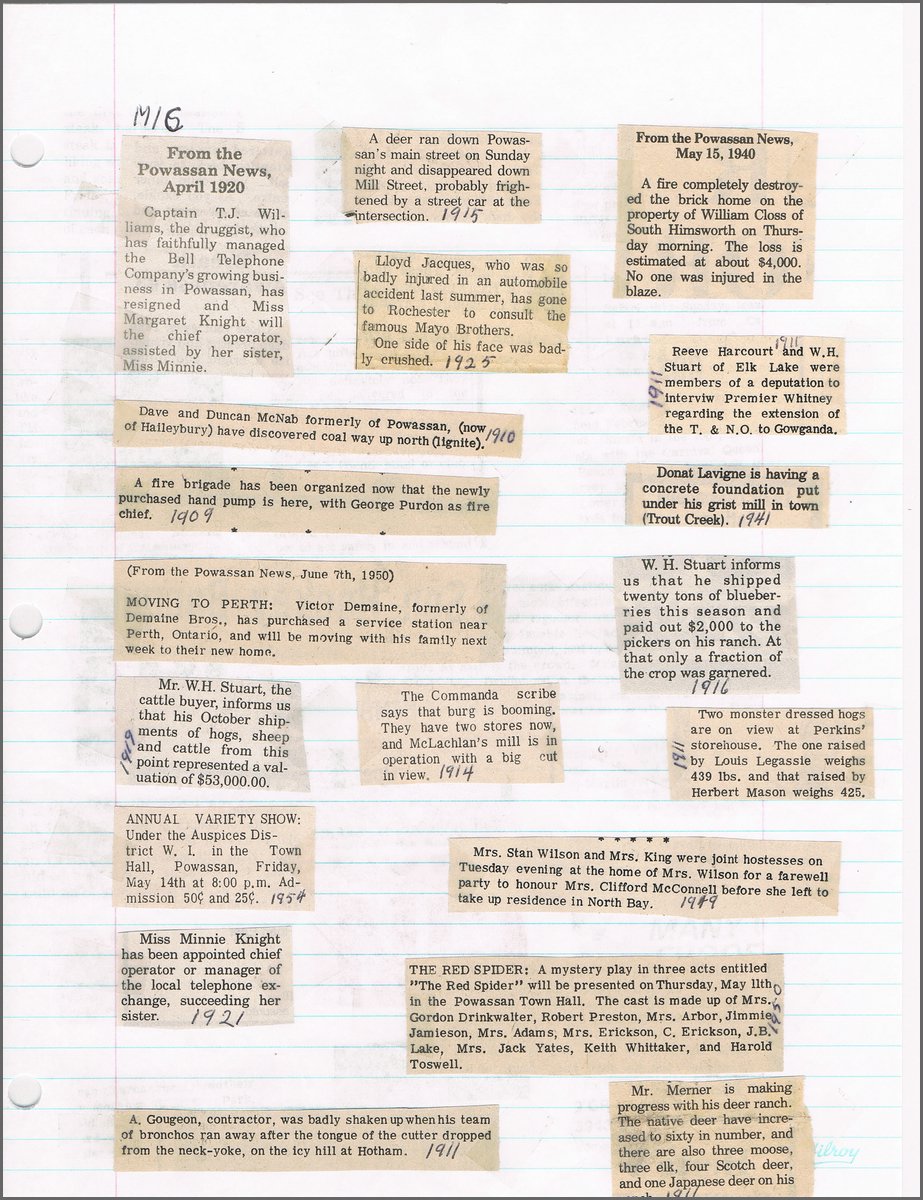 M/G
From the
Powassan News,
April 1920
Captain T.J. Wil-
liams, the druggist, who
has faithfully managed
the Bell Telephone
Company's growing busi-
ness in Powassan, has
resigned and Miss
Margaret Knight will
the chief operator,
assisted by her sister,
Miss Minnie.
A deer ran down Powas-
san's main street on Sunday
night and disappeared down
Mill Street, probably frigh-
tened by a street car at the
intersection. 1915
From the Powassan News,
May 15, 1940
A fire completely destroy-
ed the brick home on the
property of William Closs of
South Himsworth on Thurs-
day morning. The loss is
estimated at about $4,000.
No one was injured in the
blaze.
Lloyd Jacques, who was so
badly injured in an automobile
accident last summer, has gone
to Rochester to consult the
famous Mayo Brothers.
One side of his face was bad-
ly crushed. 1925
1911
Reeve Harcourt and W.H.
Stuart of Elk Lake were
members of a deputation to
interviw Premier Whitney
regarding the extension of
the T. & N.O. to Gowganda.
1911
Dave and Duncan McNab formerly of Powassan, (now
of Haileybury) have discovered coal way up north (lignite). 1910
* * *
A fire brigade has been organized now that the newly
purchased hand pump is here, with George Purdon as fire
chief. 1909
* * *
Donat Lavigne is having a
concrete foundation put
under his grist mill in town
(Trout Creek). 1941
(From the Powassan News, June 7th, 1950)
MOVING TO PERTH: Victor Demaine, formerly of
Demaine Bros., has purchased a service station near
Perth, Ontario, and will be moving with his family next
week to their new home.
W. H. Stuart informs
us that he shipped
twenty tons of blueber-
ries this season and
paid out $2,000 to the
pickers on his ranch. At
that only a fraction of
the crop was garnered.
1916
Mr. W.H. Stuart, the
cattle buyer, informs us
that his October ship-
ments of hogs, sheep
and cattle from this
point represented a val-
uation of $53,000.00.
1919
The Commanda scribe
says that burg is booming.
They have two stores now,
and McLachlan's mill is in
operation with a big cut
in view. 1914
Two monster dressed hogs
are on view at Perkins'
storehouse. The one raised
by Louis Legassie weighs
439 lbs. and that raised by
Herbert Mason weighs 425.
1911
ANNUAL VARIETY SHOW:
Under the Auspices Dis-
trict W. I. in the Town
Hall, Powassan, Friday,
May 14th at 8:00 p.m. Ad-
mission 50¢ and 25¢. 1954
* * * * *
Mrs. Stan Wilson and Mrs. King were joint hostesses on
Tuesday evening at the home of Mrs. Wilson for a farewell
party to honour Mrs. Clifford McConnell before she left to
take up residence in North Bay. 1949
Miss Minnie Knight
has been appointed chief
operator or manager of
the local telephone ex-
change, succeeding her
sister. 1921
THE RED SPIDER: A mystery play in three acts entitled
"The Red Spider" will be presented on Thursday, May 11th
in the Powassan Town Hall. The cast is made up of Mrs.
Gordon Drinkwalter, Robert Preston, Mrs. Arbor, Jimmie
Jamieson, Mrs. Adams, Mrs. Erickson, C. Erickson, J.B.
Lake, Mrs. Jack Yates, Keith Whittaker, and Harold
Toswell.
1950
A. Gougeon, contractor, was badly shaken up when his team
of bronchos ran away after the tongue of the cutter dropped
from the neck-yoke, on the icy hill at Hotham. 1911
Mr. Merner is making
progress with his deer ranch.
The native deer have incre-
ased to sixty in number, and
there are also three moose,
three elk, four Scotch deer,
and one Japanese deer on his
1911
Hilroy